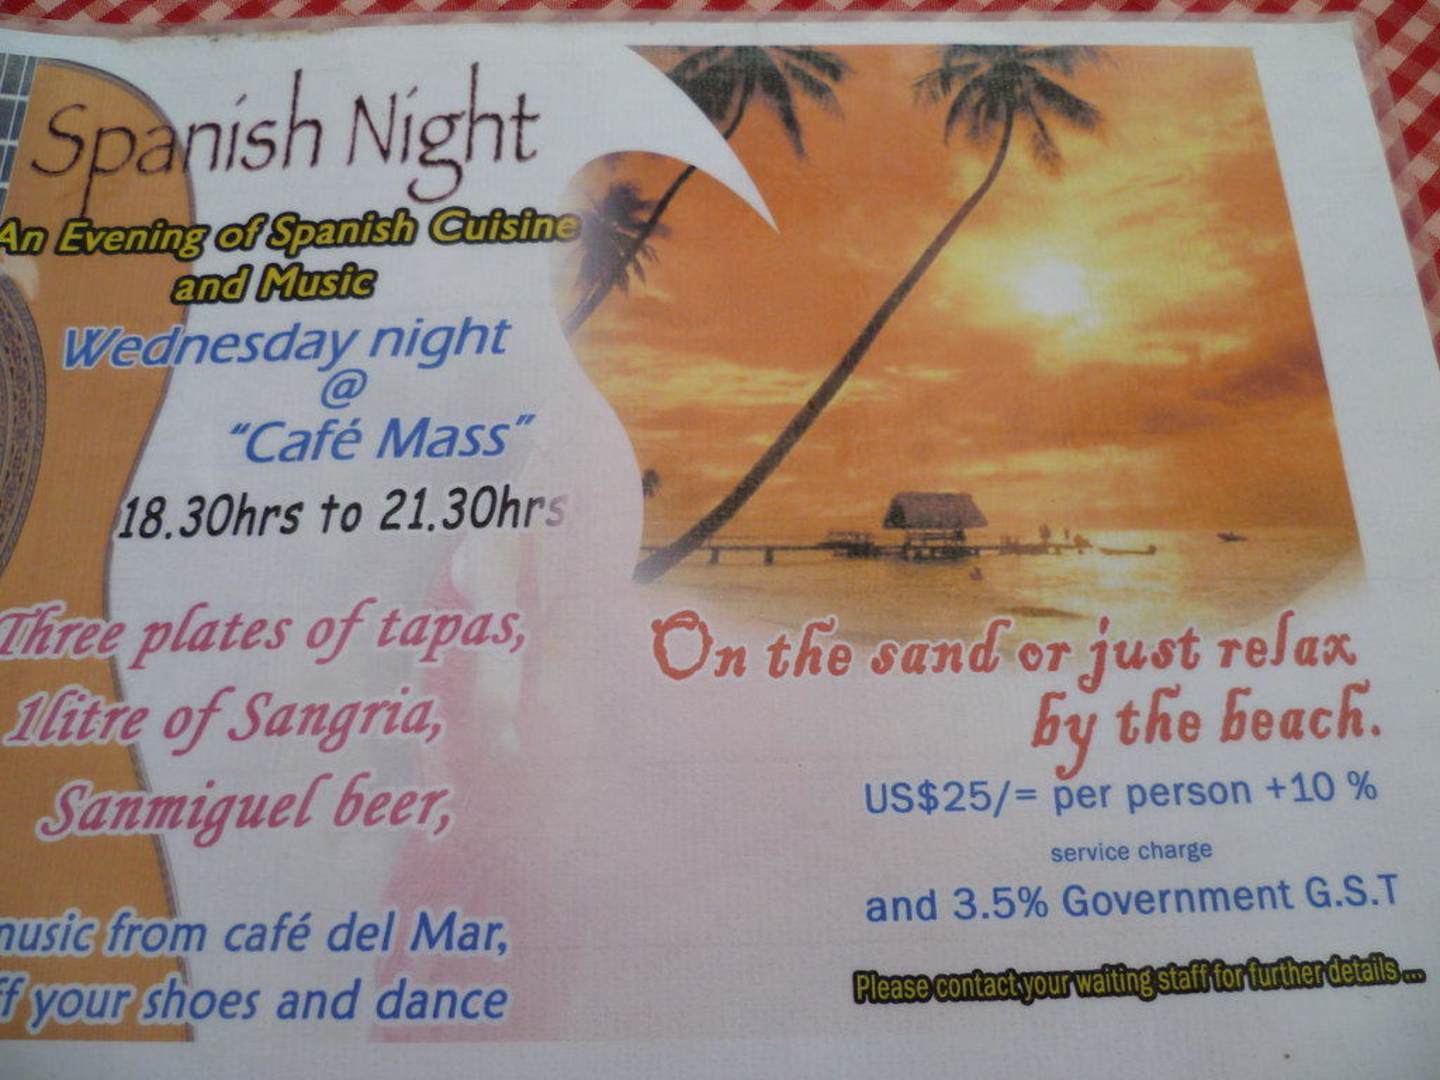 Spanish Night
An Evening of Spanish Cuisine
and Music
Wednesday night
@
“Café Mass”
18.30hrs to 21.30hrs
Three plates of tapas,
1litre of Sangria,
Sanmiguel beer,
music from café del Mar,
your shoes and dance
On the sand or just relax
by the beach.
US$25/= per person +10 %
service charge
and 3.5% Government G.S.T
Please contact your waiting staff for further details ...